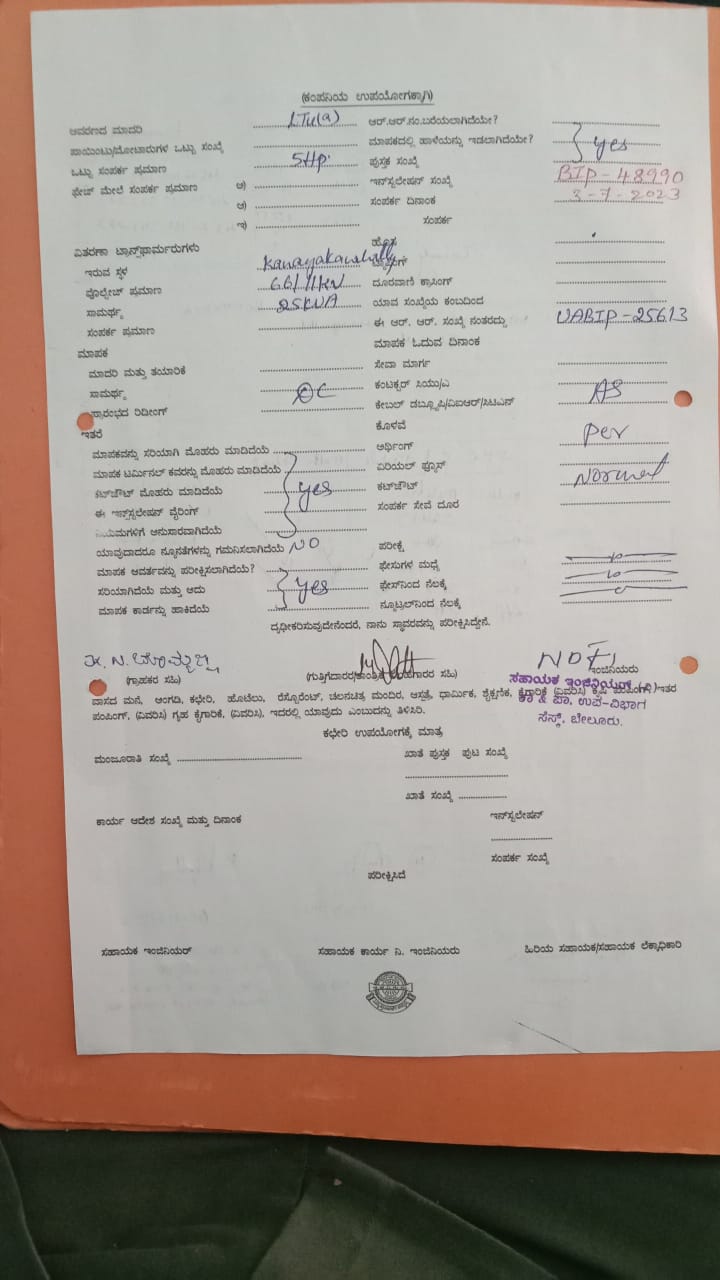 (ಕಂಪನಿಯ ಉಪಯೋಗಕ್ಕಾಗಿ)
ಆವರಣದ ಮಾದರಿ ಆರ್.ಆರ್.ನಂ.ಬರೆಯಲಾಗಿದೆಯೇ?
ಪಾಯಿಂಟು/ಮೋಟಾರುಗಳ ಒಟ್ಟು ಸಂಖ್ಯೆ ಮಾಪಕದಲ್ಲಿ ಹಾಳೆಯನ್ನು ಇಡಲಾಗಿದೆಯೇ? yes
ಒಟ್ಟು ಸಂಪರ್ಕ ಪ್ರಮಾಣ 5Hp. ಪುಸ್ತಕ ಸಂಖ್ಯೆ
ಫೇಜ್ ಮೇಲೆ ಸಂಪರ್ಕ ಪ್ರಮಾಣ ಅ) ಇನ್‌ಸ್ಟಲೇಷನ್ ಸಂಖ್ಯೆ BIP-48990
ಆ) ಸಂಪರ್ಕ ದಿನಾಂಕ 3-7-2023
ಇ) ಸಂಪರ್ಕ
ವಿತರಣಾ ಟ್ರಾನ್ಸ್‌ಫಾರ್ಮರುಗಳು ಹೊಸ
ಇರುವ ಸ್ಥಳ
ವೊಲ್ಟೇಜ್ ಪ್ರಮಾಣ 66/11KV ದೂರವಾಣಿ ಕ್ರಾಸಿಂಗ್
ಸಾಮರ್ಥ್ಯ 25KVA ಯಾವ ಸಂಖ್ಯೆಯ ಕಂಬದಿಂದ
ಸಂಪರ್ಕ ಪ್ರಮಾಣ ಈ ಆರ್. ಆರ್. ಸಂಖ್ಯೆ ನಂತರದ್ದು UABIP-25613
ಮಾಪಕ ಮಾಪಕ ಓದುವ ದಿನಾಂಕ
ಮಾದರಿ ಮತ್ತು ತಯಾರಿಕೆ ಸೇವಾ ಮಾರ್ಗ
ಸಾಮರ್ಥ್ಯ DC ಕಂಟಕ್ಟರ್ ಸಿಯು/ಎ AS
ಪ್ರಾರಂಭದ ರಿಡೀಂಗ್ ಕೇಬಲ್ ಡಬ್ಲ್ಯೂಪಿ/ವಿಐಆರ್/ಸಿಟಿಎಸ್
ಇತರೆ ಕೊಳವೆ
ಮಾಪಕವನ್ನು ಸರಿಯಾಗಿ ಮೊಹರು ಮಾಡಿದೆಯೆ ಅರ್ಥಿಂಗ್ per
ಮಾಪಕ ಟರ್ಮಿನಲ್ ಕವರನ್ನು ಮೊಹರು ಮಾಡಿದೆಯೆ ಏರಿಯಲ್ ಫ್ಯೂಸ್
ಕಟ್‌ಔಟ್ ಮೊಹರು ಮಾಡಿದೆಯೆ yes ಕಟ್‌ಔಟ್ Normal
ಈ ಇನ್‌ಸ್ಟಲೇಷನ್ ವೈರಿಂಗ್ ಸಂಪರ್ಕ ಸೇವೆ ದೂರ
ನಿಯಮಗಳಿಗೆ ಅನುಸಾರವಾಗಿದೆಯೆ
ಯಾವುದಾದರೂ ನ್ಯೂನತೆಗಳನ್ನು ಗಮನಿಸಲಾಗಿದೆಯೆ NO ಪರೀಕ್ಷೆ
ಮಾಪಕ ಆವರ್ತವನ್ನು ಪರೀಕ್ಷಿಸಲಾಗಿದೆಯೆ? ಫೇಸುಗಳ ಮಧ್ಯೆ
ಸರಿಯಾಗಿದೆಯೆ ಮತ್ತು ಅದು yes ಫೇಸ್‌ನಿಂದ ನೆಲಕ್ಕೆ
ಮಾಪಕ ಕಾರ್ಡನ್ನು ಹಾಕಿದೆಯೆ ನ್ಯೂಟ್ರಲ್‌ನಿಂದ ನೆಲಕ್ಕೆ
ದೃಢೀಕರಿಸುವುದೇನೆಂದರೆ, ನಾನು ಸ್ಥಾವರವನ್ನು ಪರೀಕ್ಷಿಸಿದ್ದೇನೆ.
(ಗ್ರಾಹಕರ ಸಹಿ) ಇಂಜಿನಿಯರು
ಸಹಾಯಕ ಇಂಜಿನಿಯರ್
ವಾಸದ ಮನೆ, ಅಂಗಡಿ, ಕಛೇರಿ, ಹೊಟೇಲು, ರೆಸ್ಟೊರೆಂಟ್, ಚಲನಚಿತ್ರ ಮಂದಿರ, ಆಸ್ಪತ್ರೆ, ಧಾರ್ಮಿಕ, ಶೈಕ್ಷಣಿಕ, ಕೈಗಾರಿಕೆ (ವಿವರಿಸಿ) ಇತರ
ಪಂಪಿಂಗ್, (ವಿವರಿಸಿ) ಗೃಹ ಕೈಗಾರಿಕೆ, (ವಿವರಿಸಿ), ಇದರಲ್ಲಿ ಯಾವುದು ಎಂಬುದನ್ನು ತಿಳಿಸಿರಿ.
ಕಾ & ಪಾ, ಉಪ-ವಿಭಾಗ
ಸೆಸ್ಕ್, ಬೇಲೂರು.
ಕಛೇರಿ ಉಪಯೋಗಕ್ಕೆ ಮಾತ್ರ
ಮಂಜೂರಾತಿ ಸಂಖ್ಯೆ ಖಾತೆ ಪುಸ್ತಕ ಪುಟ ಸಂಖ್ಯೆ
ಖಾತೆ ಸಂಖ್ಯೆ
ಕಾರ್ಯ ಆದೇಶ ಸಂಖ್ಯೆ ಮತ್ತು ದಿನಾಂಕ ಇನ್‌ಸ್ಟಲೇಷನ್
ಸಂಪರ್ಕ ಸಂಖ್ಯೆ
ಪರೀಕ್ಷಿಸಿದೆ
ಸಹಾಯಕ ಇಂಜಿನಿಯರ್ ಸಹಾಯಕ ಕಾರ್ಯ ನಿ. ಇಂಜಿನಿಯರು ಹಿರಿಯ ಸಹಾಯಕ/ಸಹಾಯಕ ಲೆಕ್ಕಾಧಿಕಾರಿ